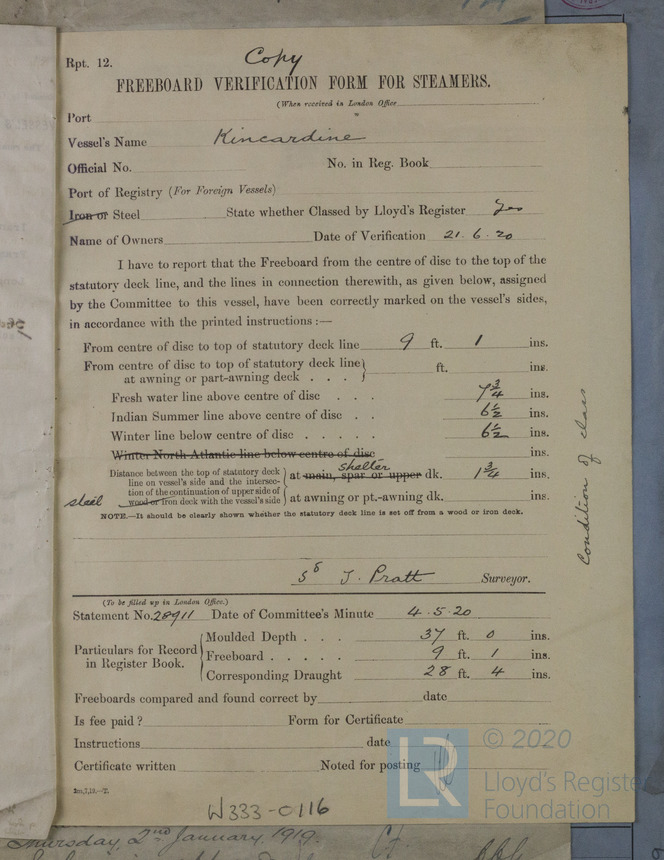 Copy
Rpt. 12.
FREEBOARD VERIFICATION FORM FOR STEAMERS.
(When received in London Office
Port
Vessel's Name Kincardine
Official No. No. in Reg. Book
Port of Registry (For Foreign Vessels)
Iron or Steel State whether Classed by Lloyd's Register Yes
Name of Owners Date of Verification 21.6.20
I have to report that the Freeboard from the centre of disc to the top of the
statutory deck line, and the lines in connection therewith, as given below, assigned
by the Committee to this vessel, have been correctly marked on the vessel's sides,
in accordance with the printed instructions :—
From centre of disc to top of statutory deck line 9 ft. 1 ins.
From centre of disc to top of statutory deck line
at awning or part-awning deck . . . ft. ins.
Fresh water line above centre of disc . . . 7 3/4 ins.
Indian Summer line above centre of disc . . 6 1/2 ins.
Winter line below centre of disc . . . . . 6 1/2 ins.
Winter North Atlantic line below centre of disc ins.
Distance between the top of statutory deck
line on vessel's side and the intersec-
tion of the continuation of upper side of
steel wood or iron deck with the vessel's side
shelter
at main, spar or upper dk. 1 3/4 ins.
at awning or pt.-awning dk. ins.
NOTE.—It should be clearly shown whether the statutory deck line is set off from a wood or iron deck.
Condition of class
Sd J. Pratt Surveyor.
(To be filled up in London Office.)
Statement No. 28911 Date of Committee's Minute 4.5.20
Particulars for Record
in Register Book.
Moulded Depth . . . 37 ft. 0 ins.
Freeboard . . . . . 9 ft. 1 ins.
Corresponding Draught 28 ft. 4 ins.
Freeboards compared and found correct by date
Is fee paid ? Form for Certificate
Instructions date
Certificate written Noted for posting
2m,7,19.—T.
W333-0116
© 2020
LR
Lloyd's Register
Foundation
Thursday, 2nd January, 1919.